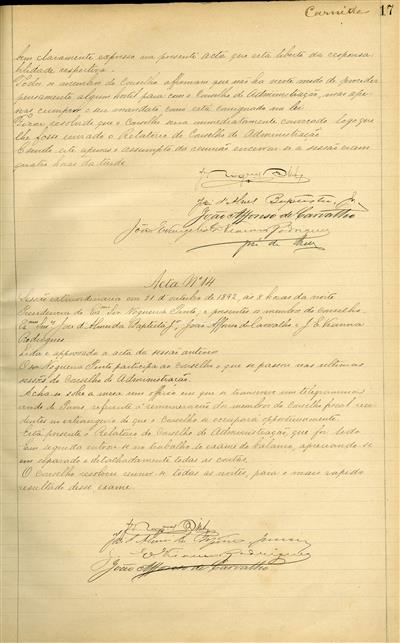 17
bem claramente expresso na presente acta que está liberto da responsa
bilidade respectiva.
Todos os membros do Conselho affirmam que não ha neste modo de proceder
pensamento algum hostil para com o Conselho de Administração, mas ape-
nas cumprir o seu mandato como está consignado na lei
Ficou resolvido que o Conselho seria immediatamente convocado logo que
lhe fosse enviado o Relatorio do Conselho de Administração
E sendo este apenas o assumpto da reunião encerrou-se a sessão eram
quatro horas da tarde
João Affonso de Carvalho
Acta Nº 14
Sessão extraordinaria em 21 de outubro de 1892, ás 8 horas da noite
Presidencia do Exmo Snr Nogueira Pinto, e presentes os membros do Conselho
Exmos Snrs José d'Almeida Baptista Jor João Affonso de Carvalho e J. E. Vianna
Rodrigues
Lida e approvada a acta da sessão anterior
O snr Nogueira Pinto participa ao Conselho o que se passou nas ultimas
sessões do Conselho de Administração.
Acha-se sobre a mesa um officio em que se transcreve um telegramma
de Paris referente á remuneração dos membros do Conselho fiscal resi-
dentes no extrangeiro de que o Conselho se occupará opportunamente
Está presente o Relatorio do Conselho de Administração que foi lido
Em seguida entrou-se no trabalho de exame do balanço, apreciando-se
em separado e detalhadamente todas as contas.
O Conselho resolveu reunir-se todas as noites, para o mais rapido
resultado desse exame.
João Affonso de Carvalho